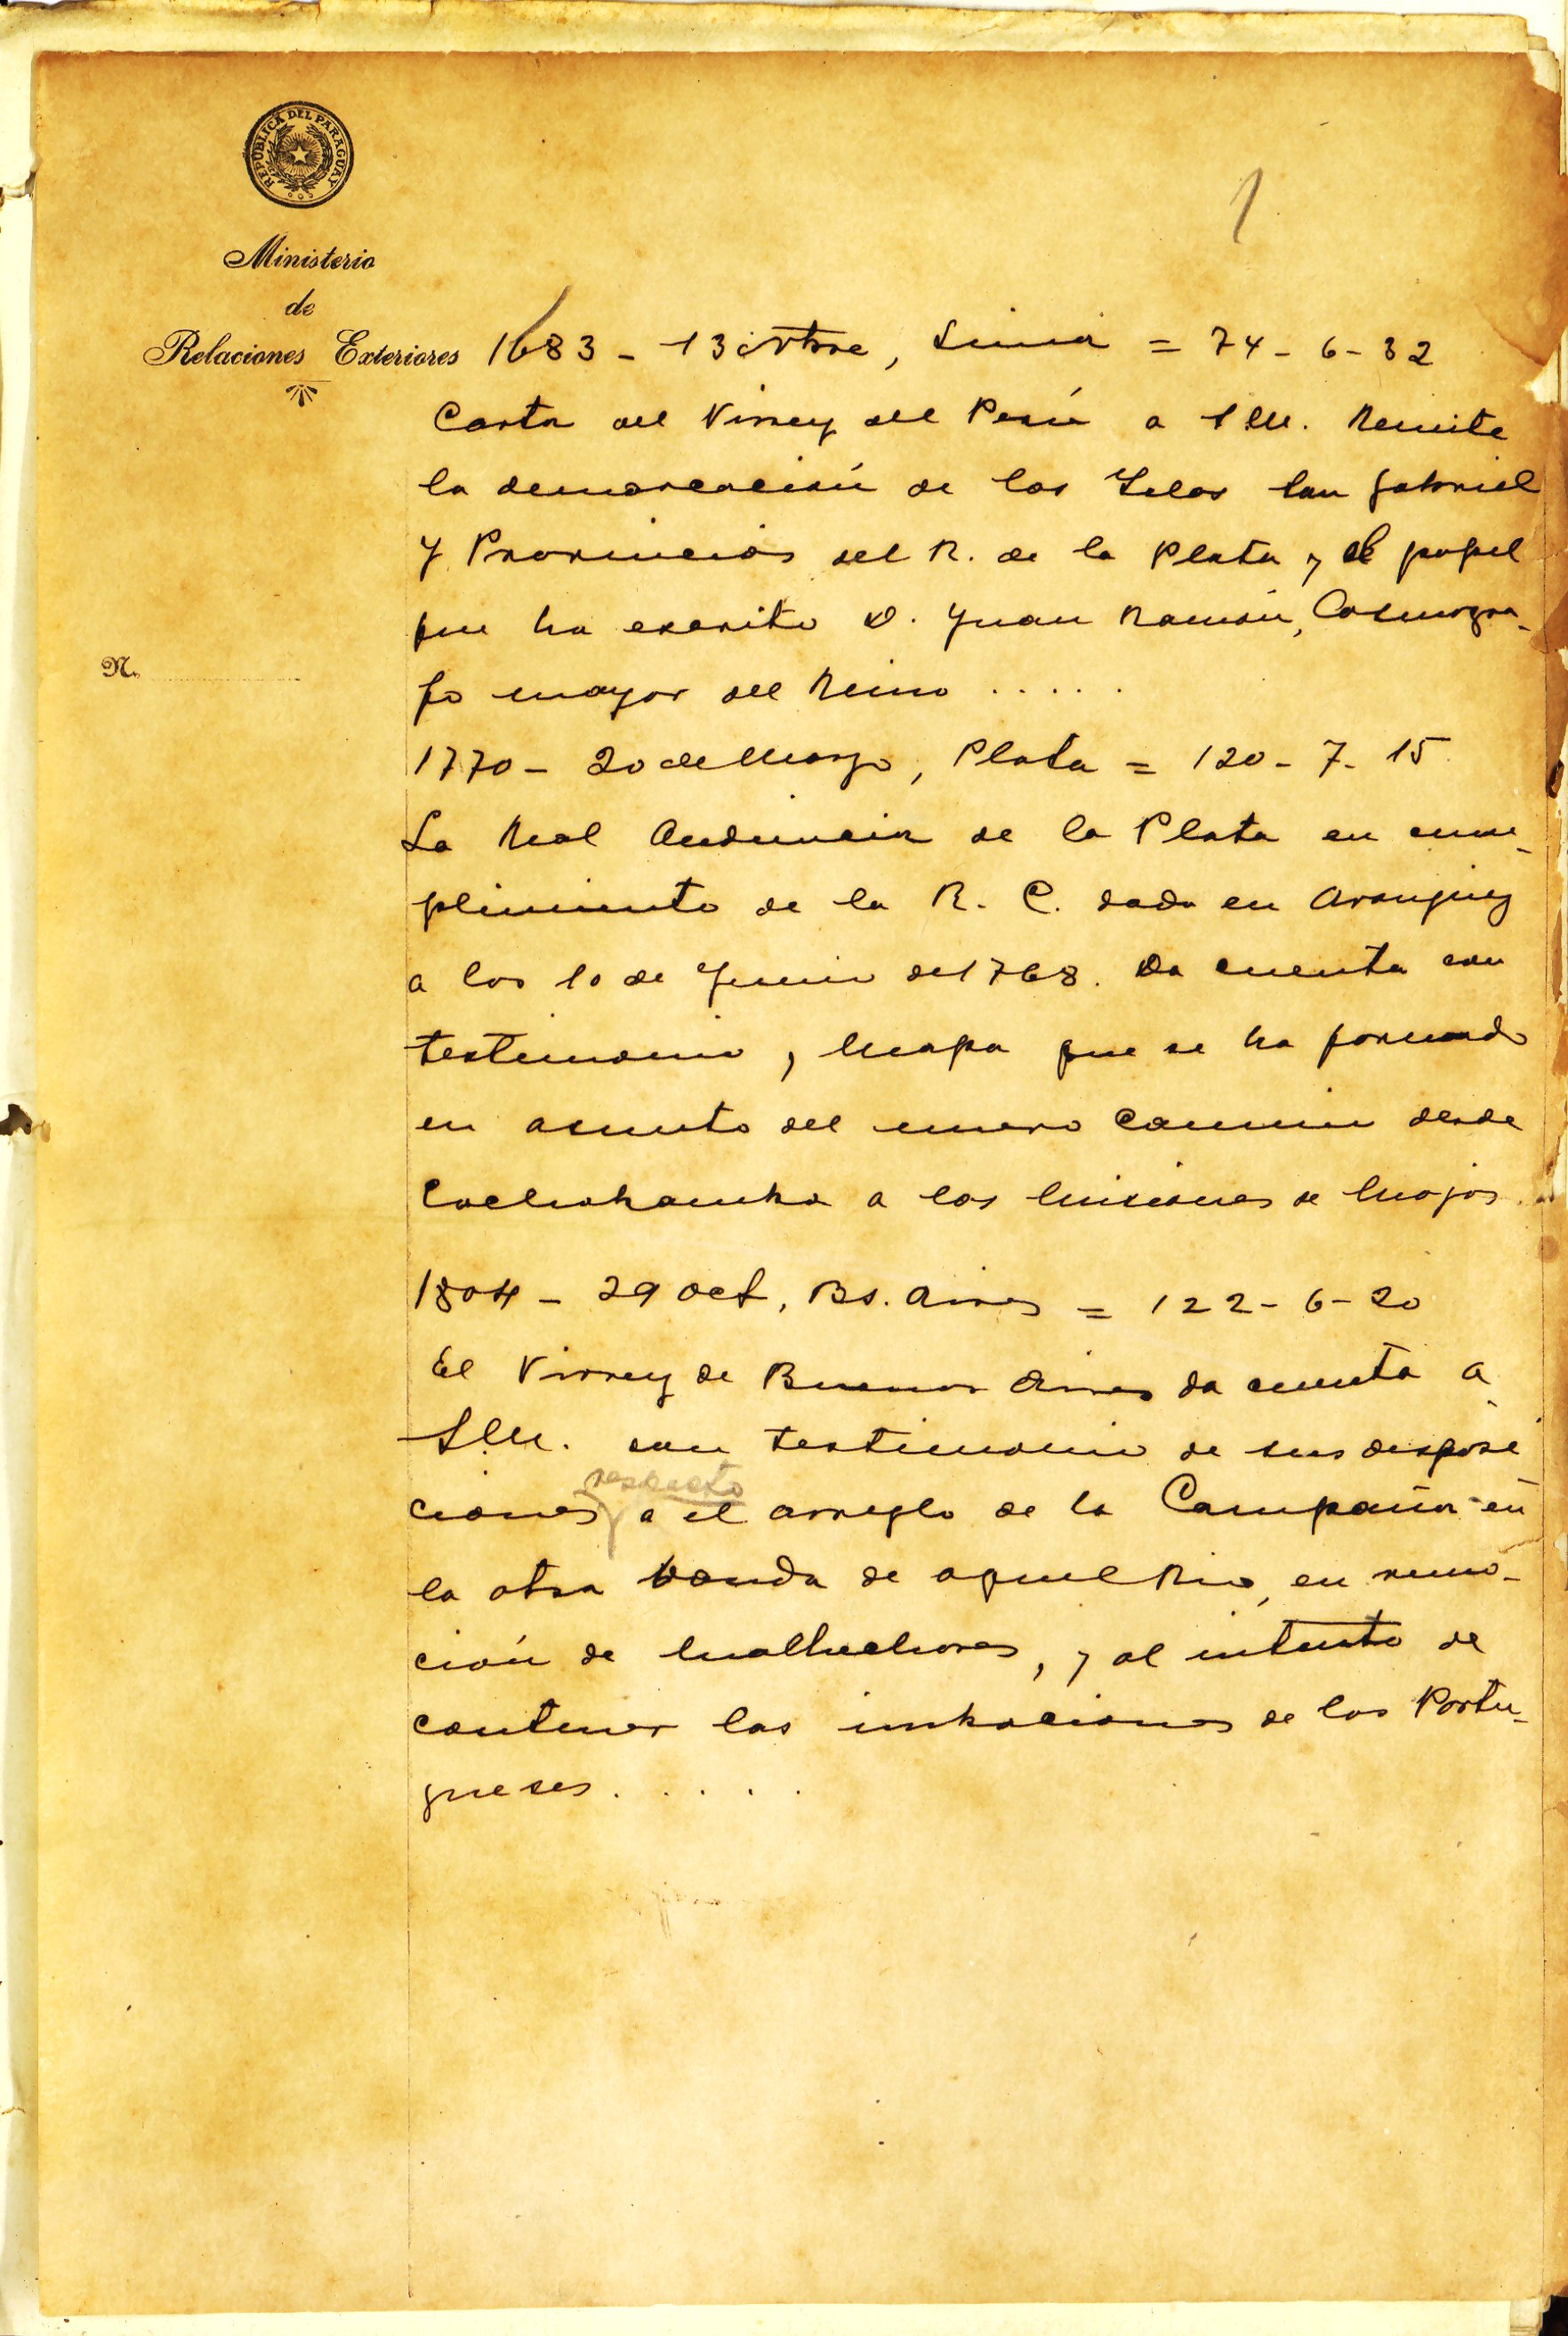 REPÚBLICA DEL PARAGUAY
1
Ministerio
de
Relaciones Exteriores
1683 - 13 Lima = 74 - 6 - 32
Carta del Virrey del Perú a S.M. Remite
la demarcación de las Islas San Gabriel
y Provincias del R. de la Plata y el papel
que ha escrito D. Juan Ramón, Cosmogra-
fo mayor del Reino . . . . .
N.
1770 - 20 de Marzo, Plata = 120 - 7 - 15
La Real Audiencia de la Plata en cum-
plimiento de la R. C. dada en Aranjuez
a los 10 de Junio de 1768. Da cuenta con
testimonio, y Mapa que se ha formado
en asunto del nuevo camino desde
Cochabamba a las Misiones de Mojos.
1804 - 29 Oct, Bs. Aires = 122 - 6 - 20
El Virrey de Buenos Aires da cuenta a
S.M. con testimonio de sus disposi
respecto
ciones a el arreglo de la Campaña en
la otra banda de aquel Rio, en remo-
ción de malhechores, y al intento de
contener las de los Portu-
gueses . . . . .